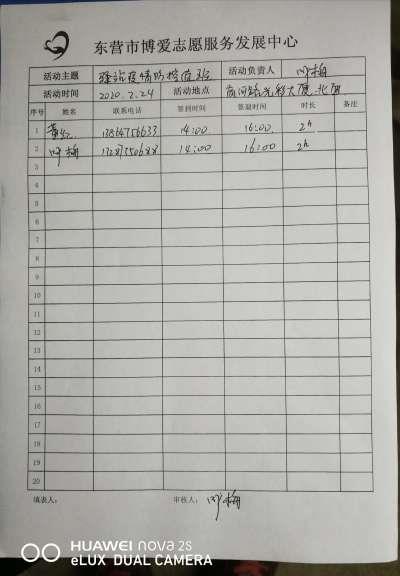 东营市博爱志愿服务发展中心
活动主题 驿站疫情防控值班 活动负责人 梅
活动时间 2020.2.24 活动地点 商河路 大厦 北
序号 姓名 联系电话 签到时间 签退时间 时长 备注
1 13864756633 14:00 16:00 2h
2 梅 14:00 16:00 2h
3
4
5
6
7
8
9
10
11
12
13
14
15
16
17
18
19
20
填表人: 审核人: 梅
HUAWEI nova 2S
eLUX DUAL CAMERA